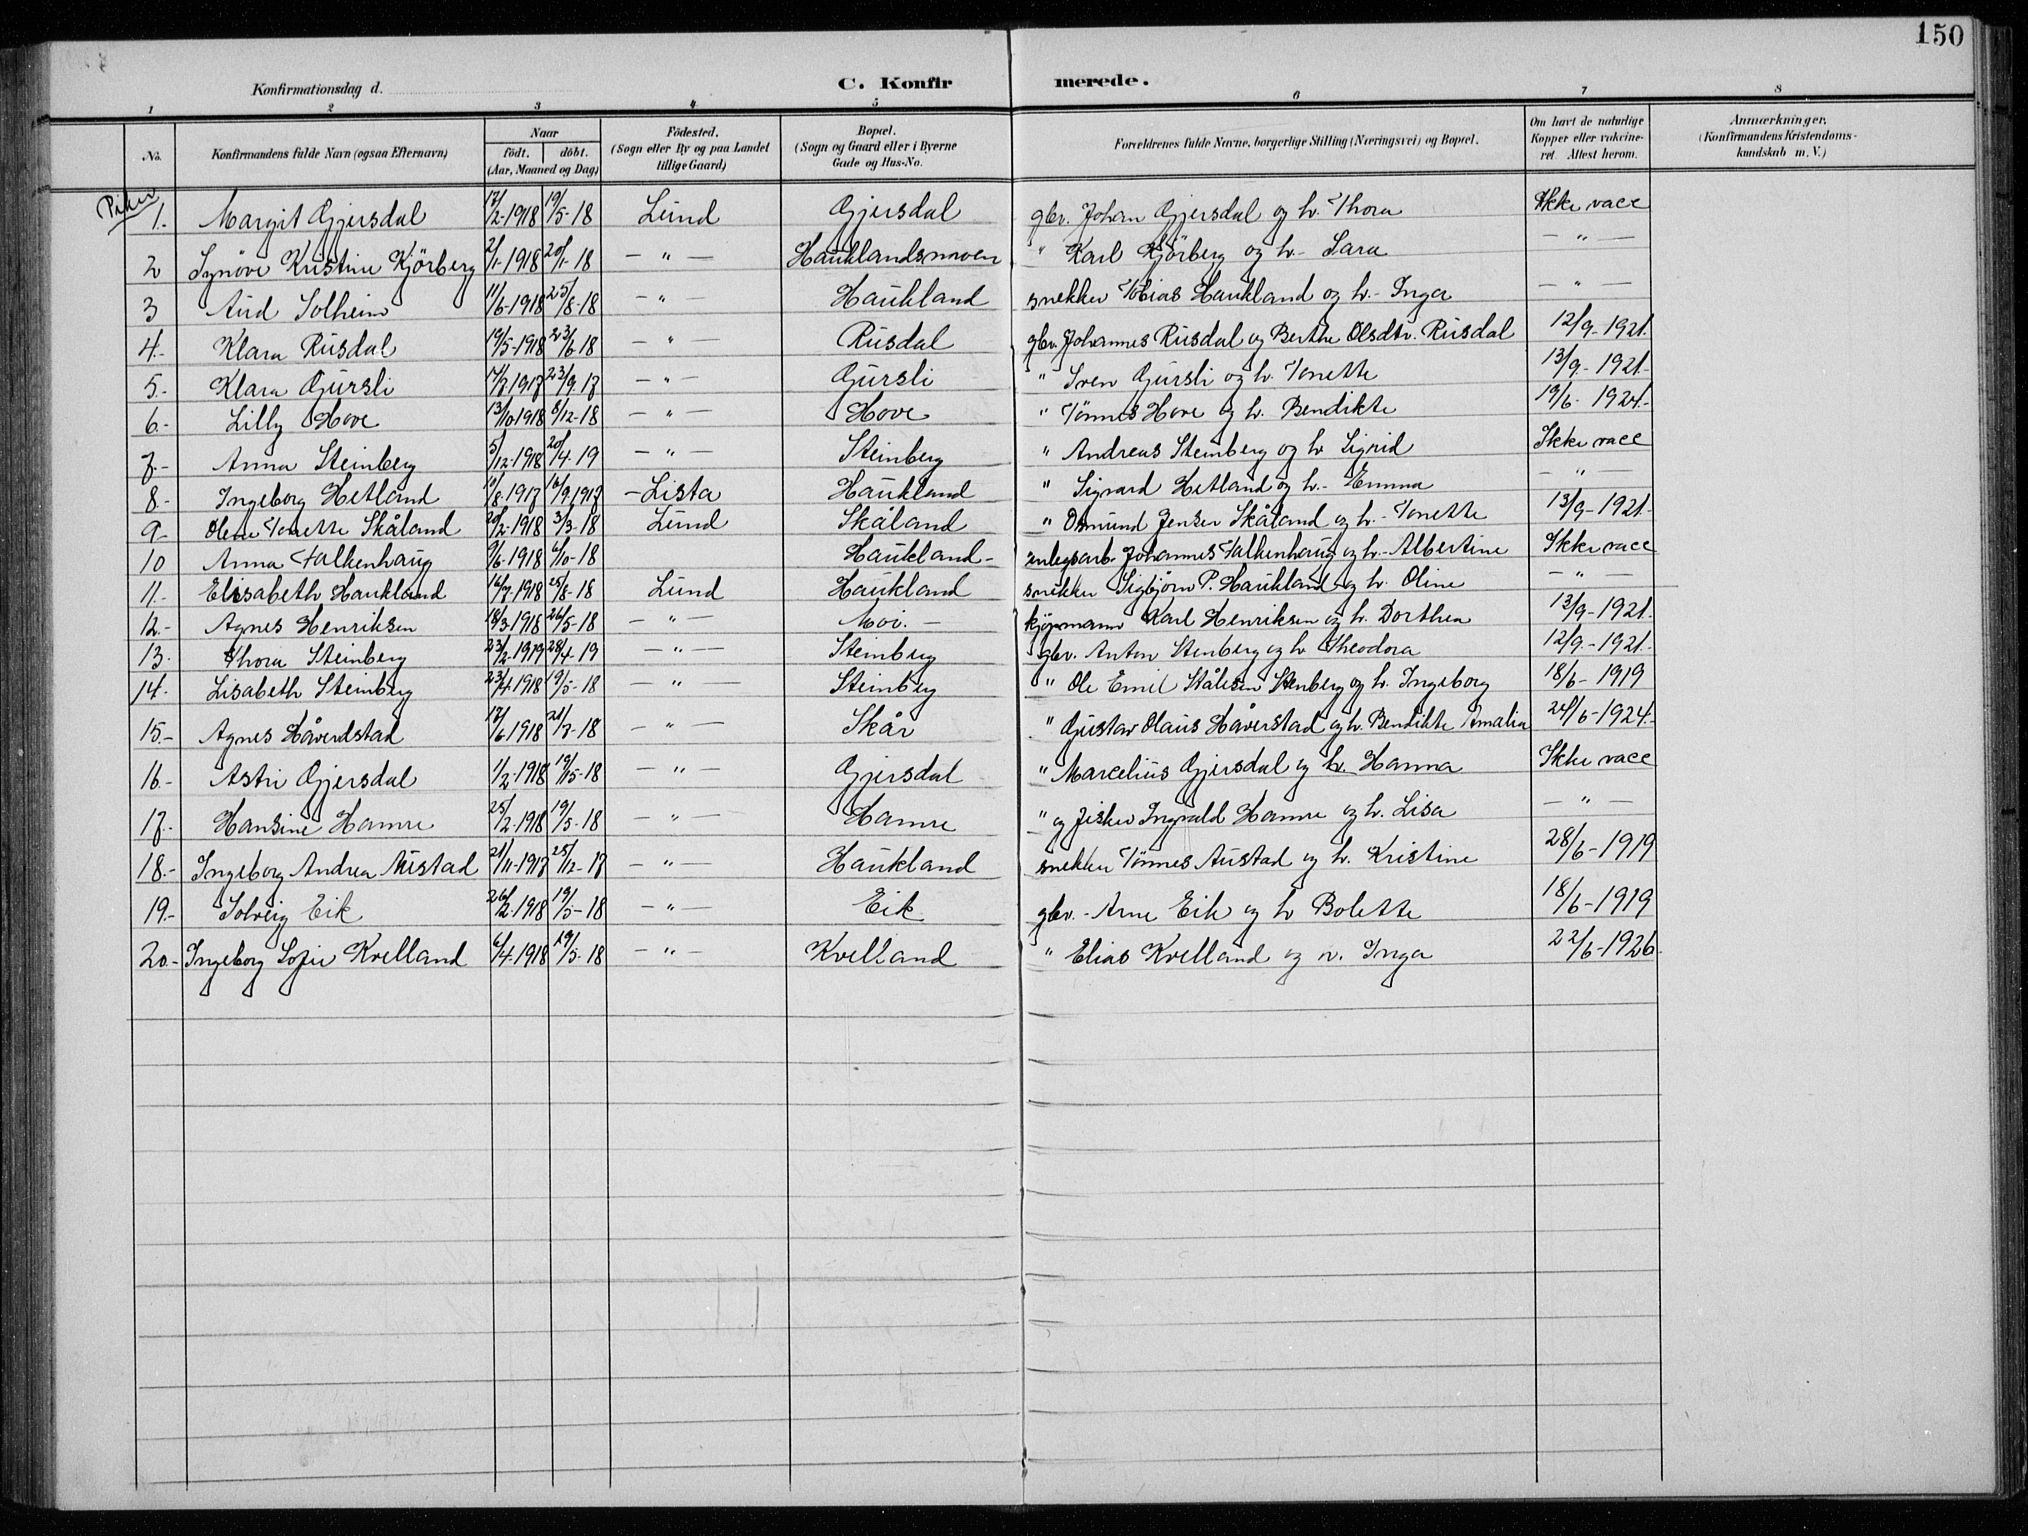 150
Konfirmationsdag d.
C. Konfirmerede.
1 2 3 4 5 6 7 8
No. | Konfirmandens fulde Navn (ogsaa Efternavn) | Naar født. døbt. (Aar, Maaned og Dag) | Fødested. (Sogn eller By og paa Landet tillige Gaard) | Bopæl. (Sogn og Gaard eller i Byerne Gade og Hus-No. | Forældrenes fulde Navne, borgerlige Stilling (Næringsvei) og Bopæl. | Om havt de naturlige Kopper eller vakcineret. Attest herom. | Anmærkninger. (Konfirmandens Kristendomskundskab m. V.)
Piker
1.- Margit Gjersdal 17/2-1918 19/5-18 Lund Gjersdal gbr. Johan Gjersdal og h. Thora Ikke vacc
2 Synöve Kristine Kjörberg 2/1-1918 20/1-18 — " — Hauklandsmoen " Karl Kjörberg og h. Sara — " —
3 Aud Solheim 11/6-1918 25/8-18 — " — Haukland snekker Tobias Haukland og h. Inga — " —
4.- Klara Rusdal 19/5-1918 23/6-18 — " — Rusdal gbr. Johannes Rusdal og Berthe Olsdtr. Rusdal 12/9-1921.
5.- Klara Gursli 17/8 1917 23/9 17 — " — Gursli " Sven Gursli og h. Tonette 13/9-1921.-
6.- Lilly Hove 13/10-1918 8/12-18 — " — Hove " Tönnes Hove og h. Bendikte 19/6-1924.-
7.- Anna Steinberg 5/12-1918 20/4-19 — " — Steinberg " Andreas Steinberg og h. Sigrid Ikke vacc
8.- Ingeborg Hetland 10/8-1917 16/9 1917 — Lista Haukland " Sigvard Hetland og h. Emma — " —
9- Olene Tonette Skåland 20/2-1918 3/3-18 Lund Skåland " Osmund Jensen Skåland og h. Tonette 13/9-1921.-
10 Anna Falkenhaug 9/6-1918 6/10-18 Haukland- anlegsarb. Johannes Falkenhaug og h. Albertine Ikke vacc
11.- Elisabeth Haukland 16/7-1918 25/8-18 Lund Haukland snekker Sigbjörn P. Haukland og h. Oline — " —
12.- Agnes Henriksen 18/3-1918 26/5-18 — " — Moi.- kjöpmann Karl Henriksen og h. Dorthea 13/9-1921.
13. Thora Steinberg 23/2-1919 28/4-19 — " — Steinberg gbr. Anton Stenberg og h Theodora 12/9-1921.
14.- Lisabeth Steinberg 23/4-1918 19/5-18 — " — Steinberg " Ole Emil Stålesen Stenberg og h. Ingeborg 18/6-1919
15.- Agnes Håverstad 17/6 1918 21/7-18 — " — Skår " Gustav Olaus Håverstad og h. Bendikte Amalia 24/6-1924.-
16.- Astri Gjersdal 1/2-1918 19/5-18 — " — Gjersdal " Marcelius Gjersdal og h. Hanna Ikke vacc
17.- Hansine Hamre 25/2-1918 19/5-18 — " — Hamre " og fisker Ingvald Hamre og h. Lisa — " —
18.- Ingeborg Andrea Austad 21/11-1917 25/12-17 — " — Haukland snekker Tönnes Austad og h. Kristine 28/6-1919
19.- Solveig Eik 26/2-1918 19/5-18 — " — Eik gbr.- Arne Eik og h Bolette 18/6-1919
20.- Ingeborg Sofie Kvelland 6/4-1918 19/5-18 — " — Kvelland " Elias Kvelland og h. Inga 22/6-1926.